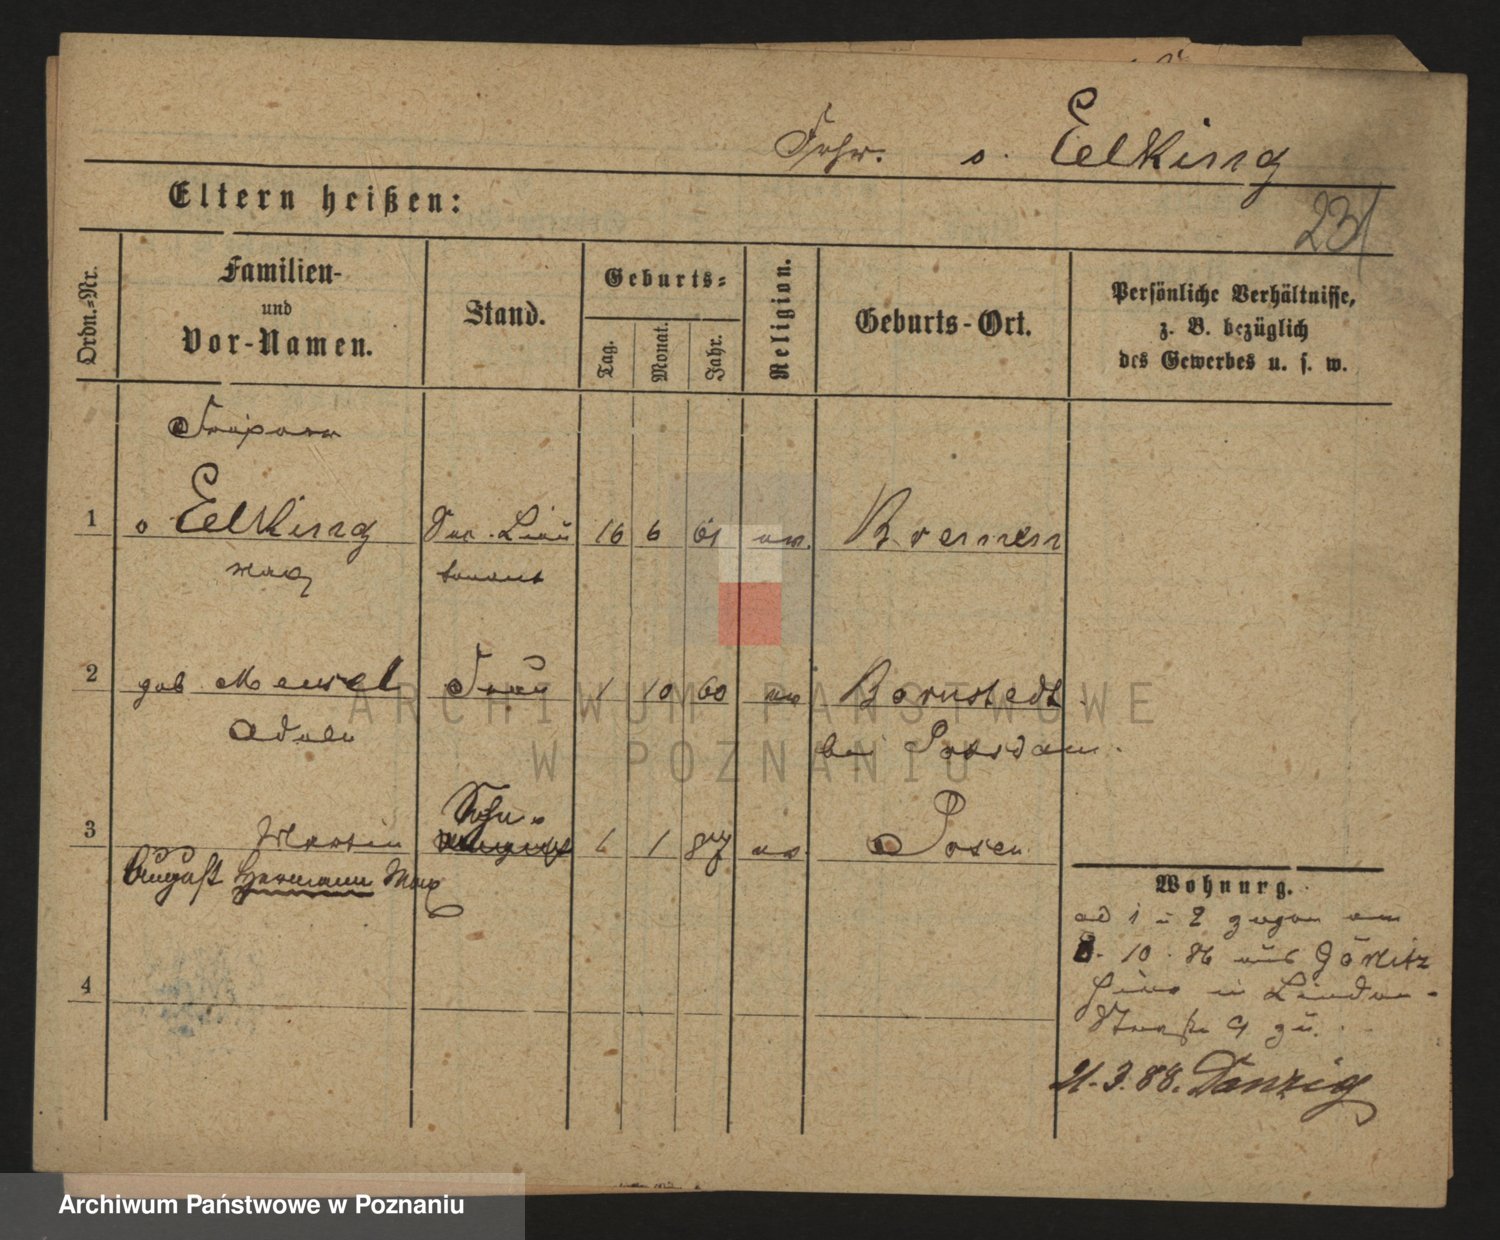 Frhr. v. Eelking
23
Eltern heißen:
Ordn.=Nr.
Familien-
und
Vor-Namen.
Stand.
Geburts=
Tag.
Monat.
Jahr.
Religion.
Geburts-Ort.
Persönliche Verhältnisse,
z. B. bezüglich
des Gewerbes u. s. w.
Freiherr
1 v Eelking Sec. Lieu 16 6 61 ev. Bremen
Max tenant
2 geb Mensel Frau 1 10 60 ev Bornstedt
Adele bei Potsdam.
Sohn
3 Martin 6 1 87 ev. Posen
August Hermann Max
4
Wohnung.
ad 1 u 2 zogen am
8. 10. 86 aus Görlitz
hier in Linden-
Straße 9 zu.
21. 3. 88. Danzig
ARCHIWUM PAŃSTWOWE
W POZNANIU
Archiwum Państwowe w Poznaniu